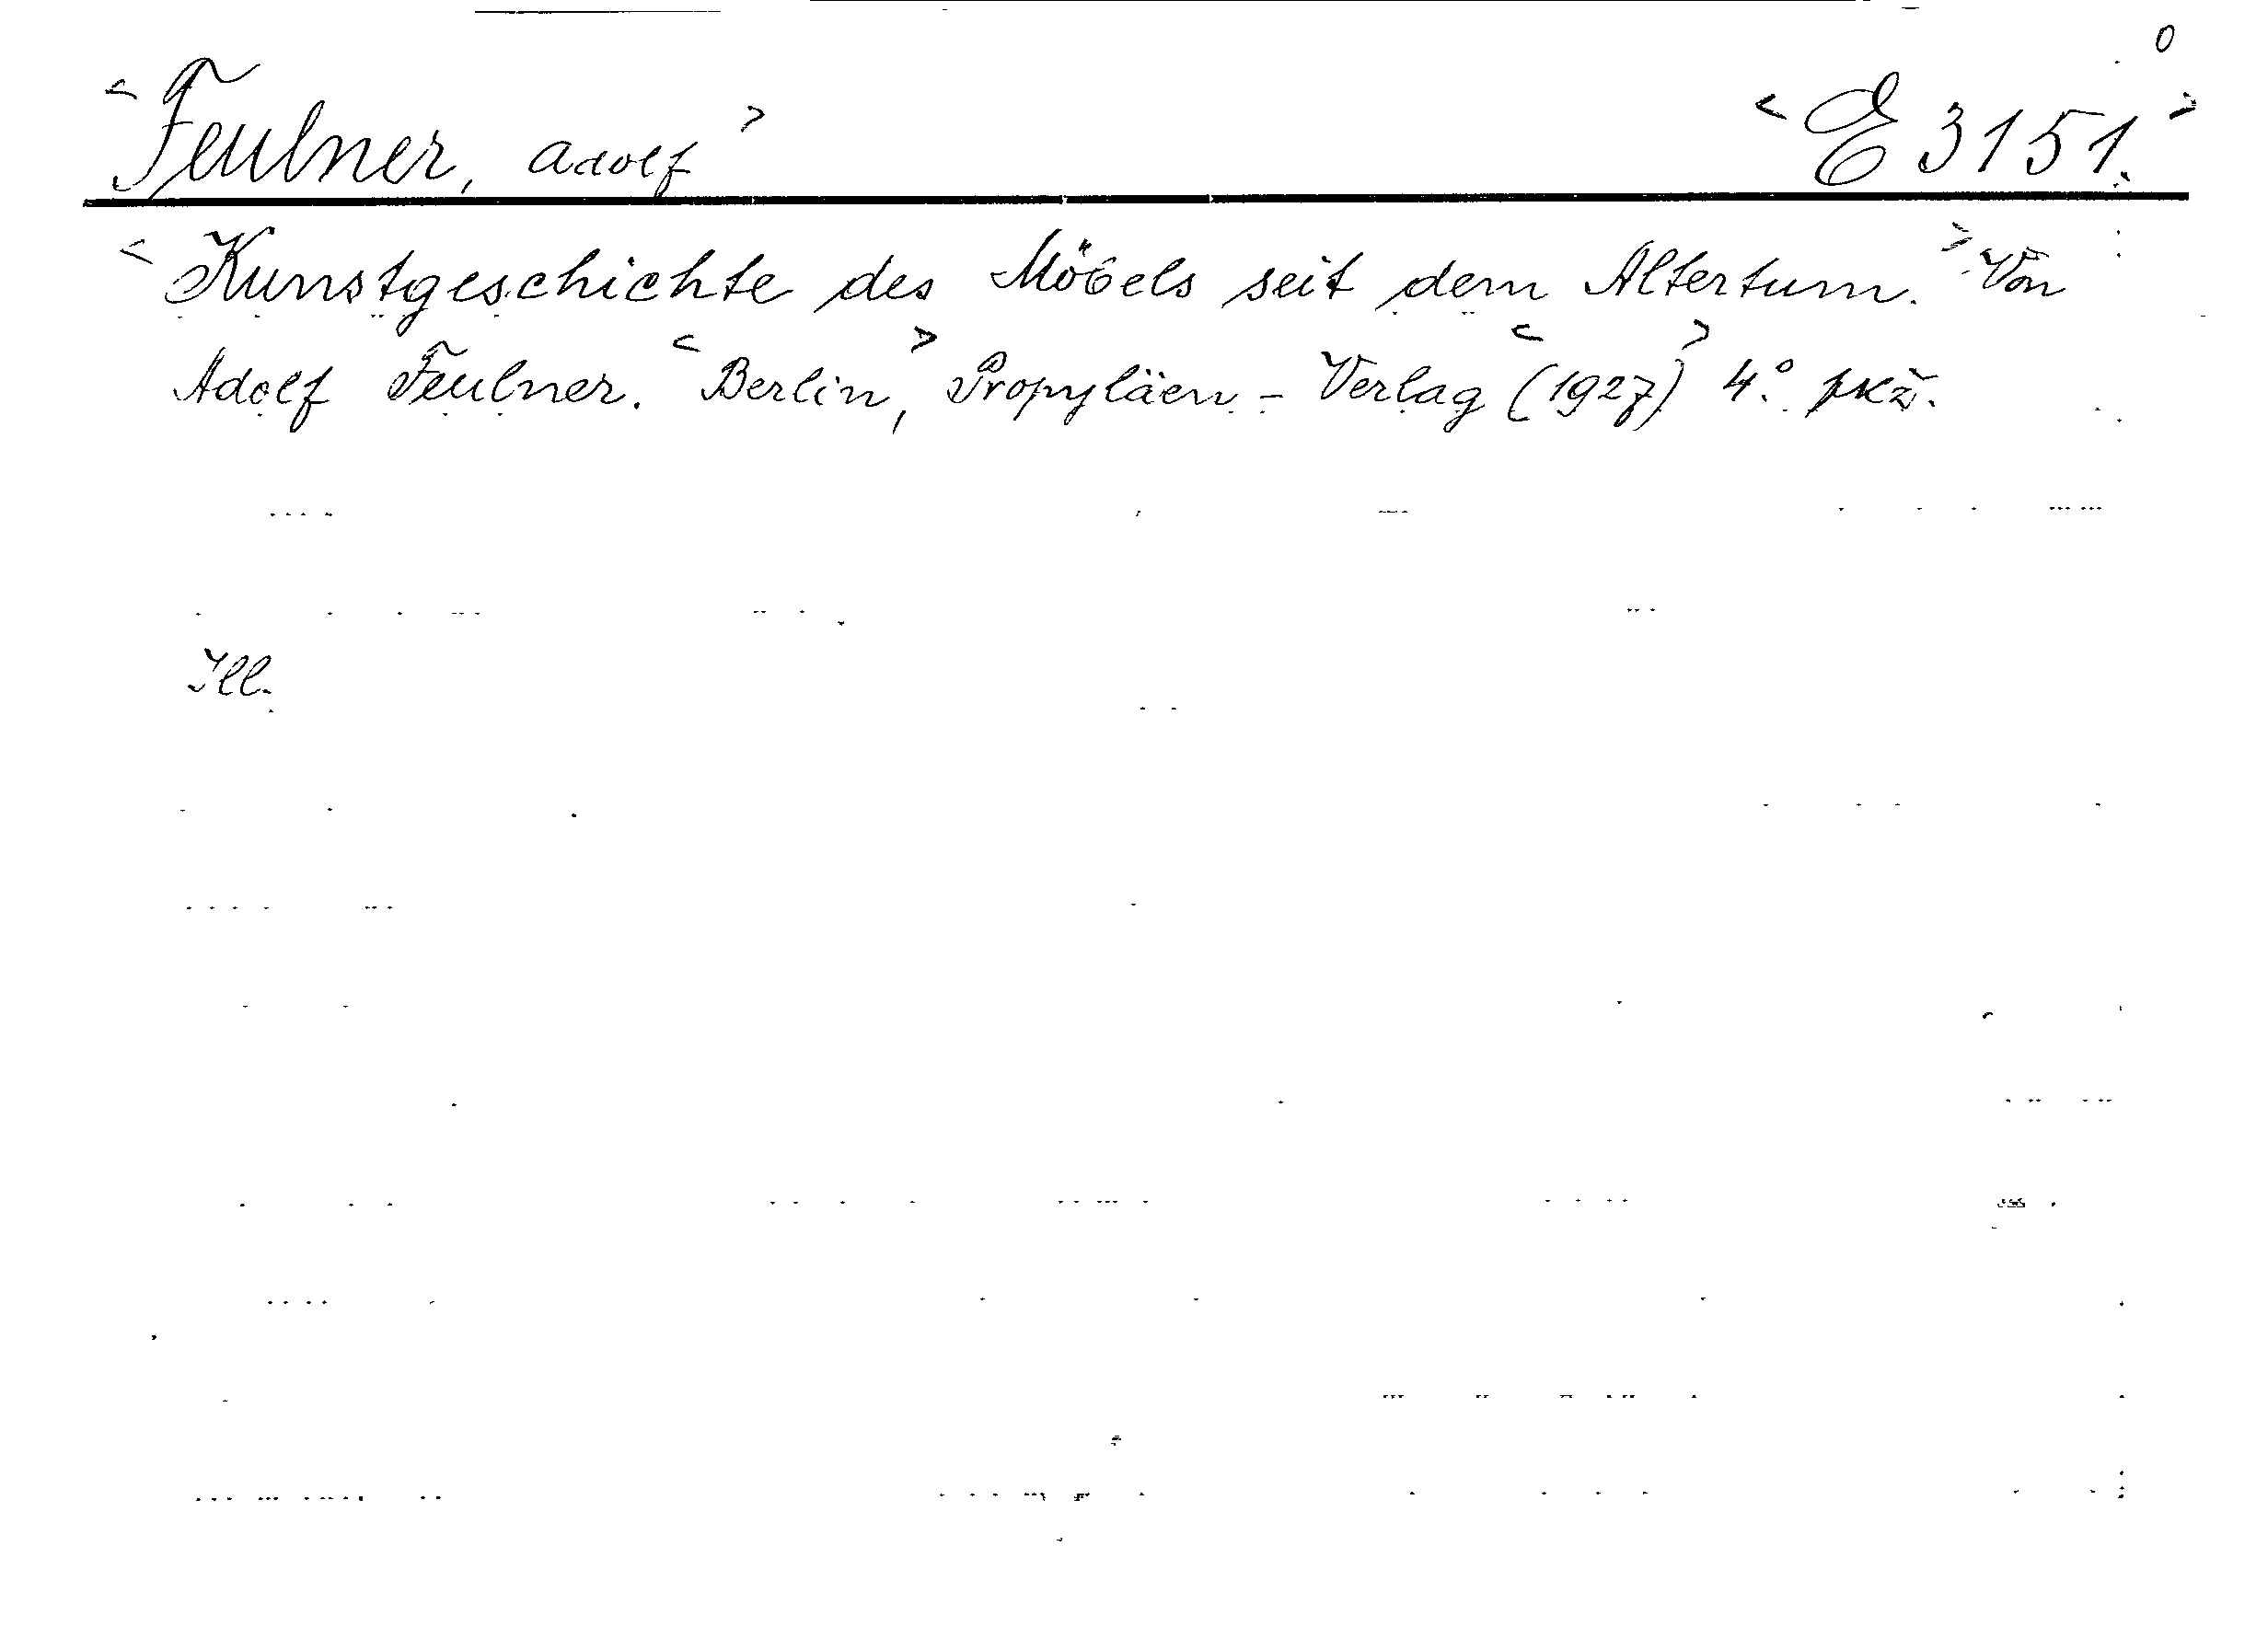 0
<Feulner, Adolf> <E 3151.>
<Kunstgeschichte des Möbels seit dem Altertum.> Von
Adolf Feulner. <Berlin,> Propyläen-Verlag <(1927)> 4.° pkž.
Ill.